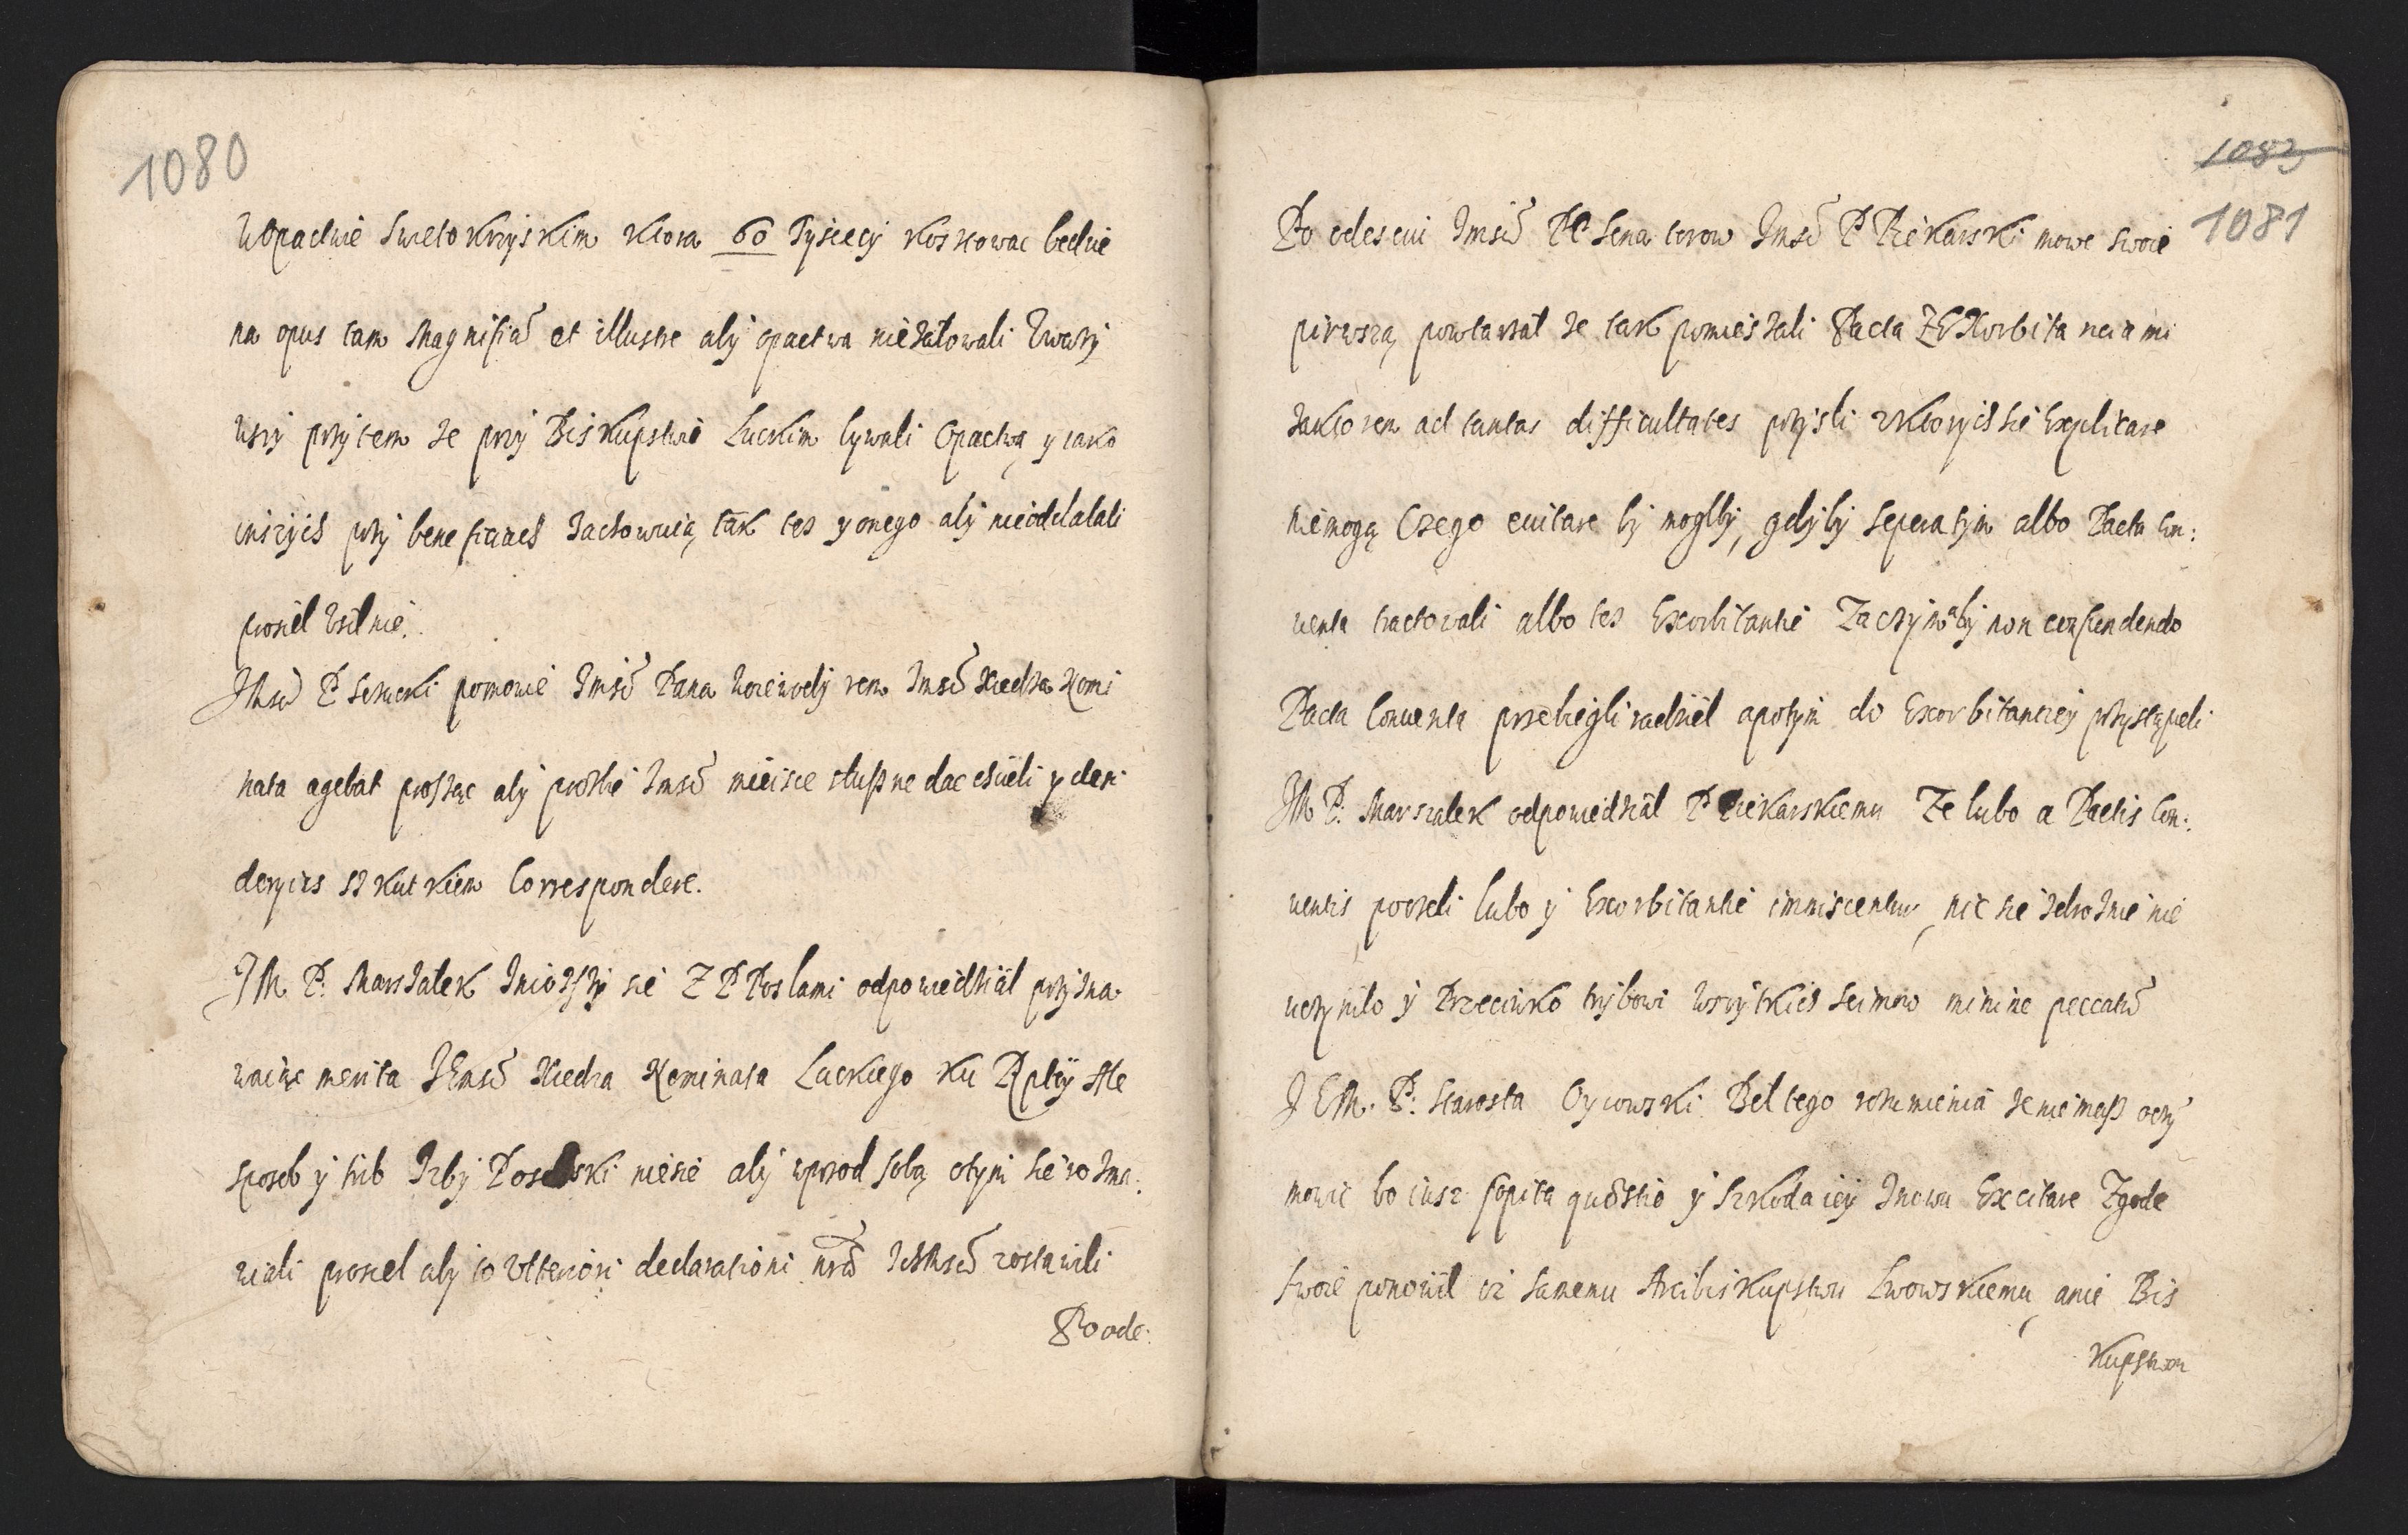 1080
WOpactwie Swietokrzyskim Ktora 60 Tysięcy kosztowac bedzie
na opus tam Magnificu et illustre aby opactwa nieżałowali Zwazy
wszy przytem że przy Biskupstwie Luckim bywali Opactwa y iako
inszych przy beneficiach zachowuią, tak tes y onego aby nieoddalali
prosiel usilnie.
JMsc P Sera
pomowie Jmsci Pana Woiewody rem Jmsci Xiedza Nomi
nata agebat prosząc aby prozbie Jmsci mieisce słuszne dac chcieli y desi
deryies skutkiem Correspondere.
JM P. Marszałek zniozszy sie Z P Posłami odpowiedział przyzna
waiąc merita JEmsci Xiedza Nominata Luckiego ku Rptey Ale
sposob y trib Izby Poselski niesie aby wprzod sobą otym sie rozma:
wiali prosiel aby to Ulteriori declarationi zostawili
Po ode:
1083
1081
Po odesciu Jmsciu PP Senatorow Jmsc P Piekarski mowe swoie
pirwszą powtarzał że tak pomieszali Pacta Z EXorbitanciami
zaktorem ad tantas difficultates przyszli zktorych sie Explicare
niemogą Czego euitare by mogli, gdyby seperatym albo Pacta Con:
uenta tractowali albo tes Exorbitantie Zaczym by non confundendo
Pacta Conuenta przebiegli radziel apotym do Exorbitantiey przystąpieli
JM P. Marszalek odpowiedział P Piekarskiemu Ze lubo a Pactis Con:
uentis poszeli lubo y Exorbitantie immiscentur, nic sie zdrożnie nie
uczynilo y Przeciwko trybowi wszytkich Seimow minime peccatu
JEM. P: Starosta Oycowski Bel tego rozumienia że niemasz oczy
mowic bo iusz sopita quæstio y szkoda iey znowu Excitare Zgode
swoie ponowiel iż samemu Arcibiskupstwu Lwowskiemu, anie Bis
kupstwu